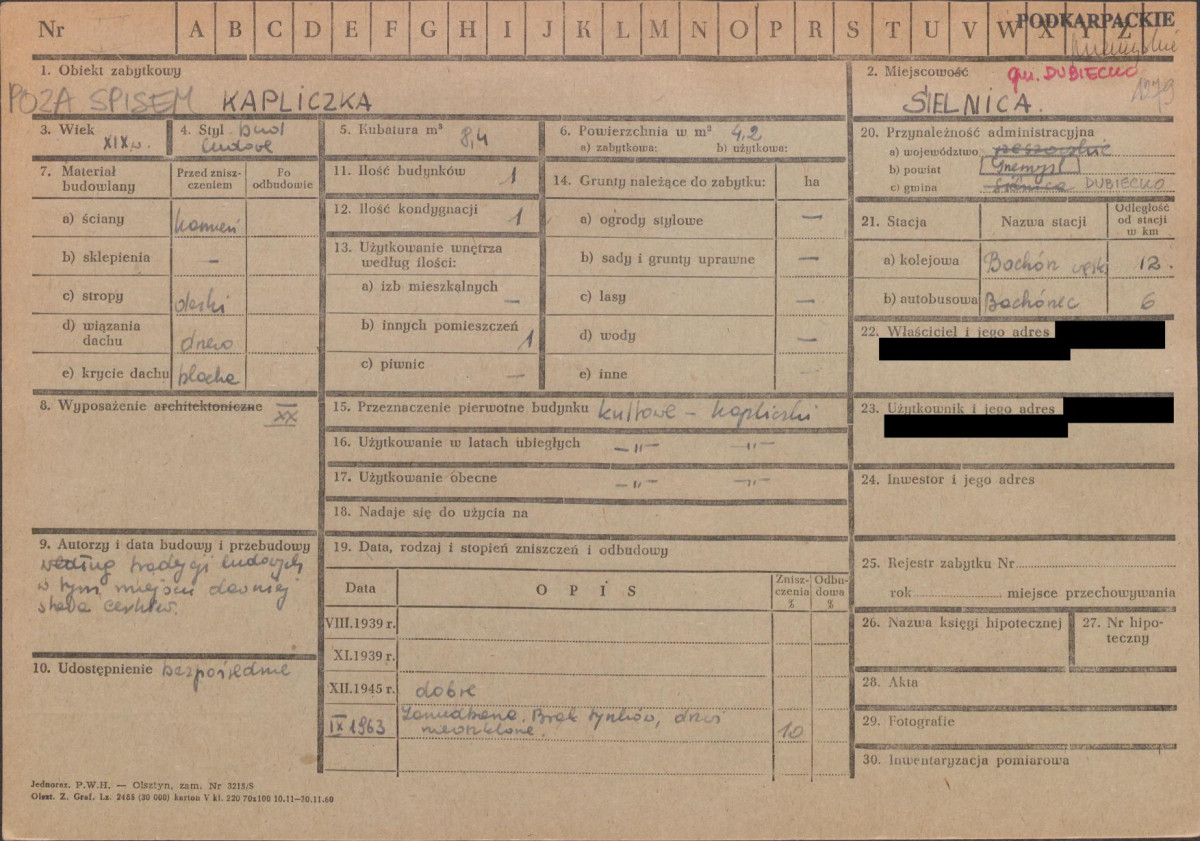 Nr A B C D E F G H I J K L M N O P R S T U V W X Y Z
PODKARPACKIE
przemyskie
1. Obiekt zabytkowy
POZA SPISEM KAPLICZKA
2. Miejscowość gm. DUBIECKO
SIELNICA. 1279
3. Wiek
XIX w.
4. Styl bud
ludowe
5. Kubatura m³ 8,4
6. Powierzchnia w m² 4,2
a) zabytkowa: b) użytkowa:
7. Materiał budowlany
Przed znisz-
czeniem
Po
odbudowie
a) ściany kamień
b) sklepienia –
c) stropy deski
d) wiązania
dachu drewo
e) krycie dachu blacha
8. Wyposażenie architektoniczne XX
9. Autorzy i data budowy i przebudowy
według tradycji ludowych
w tym miejscu dawniej
stała cerkiew.
10. Udostępnienie bezpośrednie
11. Ilość budynków 1
12. Ilość kondygnacji 1
13. Użytkowanie wnętrza
według ilości:
a) izb mieszkalnych –
b) innych pomieszczeń 1
c) piwnic –
14. Grunty należące do zabytku: ha
a) ogrody stylowe –
b) sady i grunty uprawne –
c) lasy –
d) wody –
e) inne –
15. Przeznaczenie pierwotne budynku kultowe – kapliczki
16. Użytkowanie w latach ubiegłych –"– –"–
17. Użytkowanie obecne –"– –"–
18. Nadaje się do użycia na
19. Data, rodzaj i stopień zniszczeń i odbudowy
Data O P I S
Znisz-
czenia
%
Odbu-
dowa
%
VIII.1939 r.
XI.1939 r.
XII.1945 r. dobre
IX 1963 Zaniedbana. Brak tynków, drzwi
nieoszklone. 10
20. Przynależność administracyjna
a) województwo rzeszowskie
b) powiat Przemyśl
c) gmina Sielnica DUBIECKO
21. Stacja Nazwa stacji
Odległość
od stacji
w km
a) kolejowa Bachórz wąsk. 12.
b) autobusowa Bachórzec 6
22. Właściciel i jego adres
23. Użytkownik i jego adres
24. Inwestor i jego adres
25. Rejestr zabytku Nr
rok miejsce przechowywania
26. Nazwa księgi hipotecznej
27. Nr hipo-
teczny
28. Akta
29. Fotografie
30. Inwentaryzacja pomiarowa
Jednoraz. P.W.H. — Olsztyn, zam. Nr 3215/S
Olszt. Z. Graf. Lz. 2485 (30 000) karton V kl. 220 70x100 10.11—30.11.60